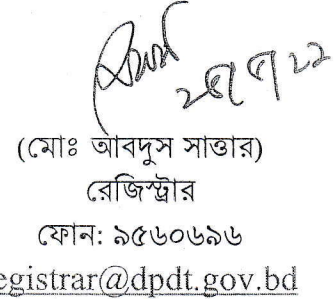 (মোঃ আবদুস সাত্তার)
রেজিস্ট্রার
ফোন: ৯৫৬০৬৯৬
egistrar@dpdt.gov.bd